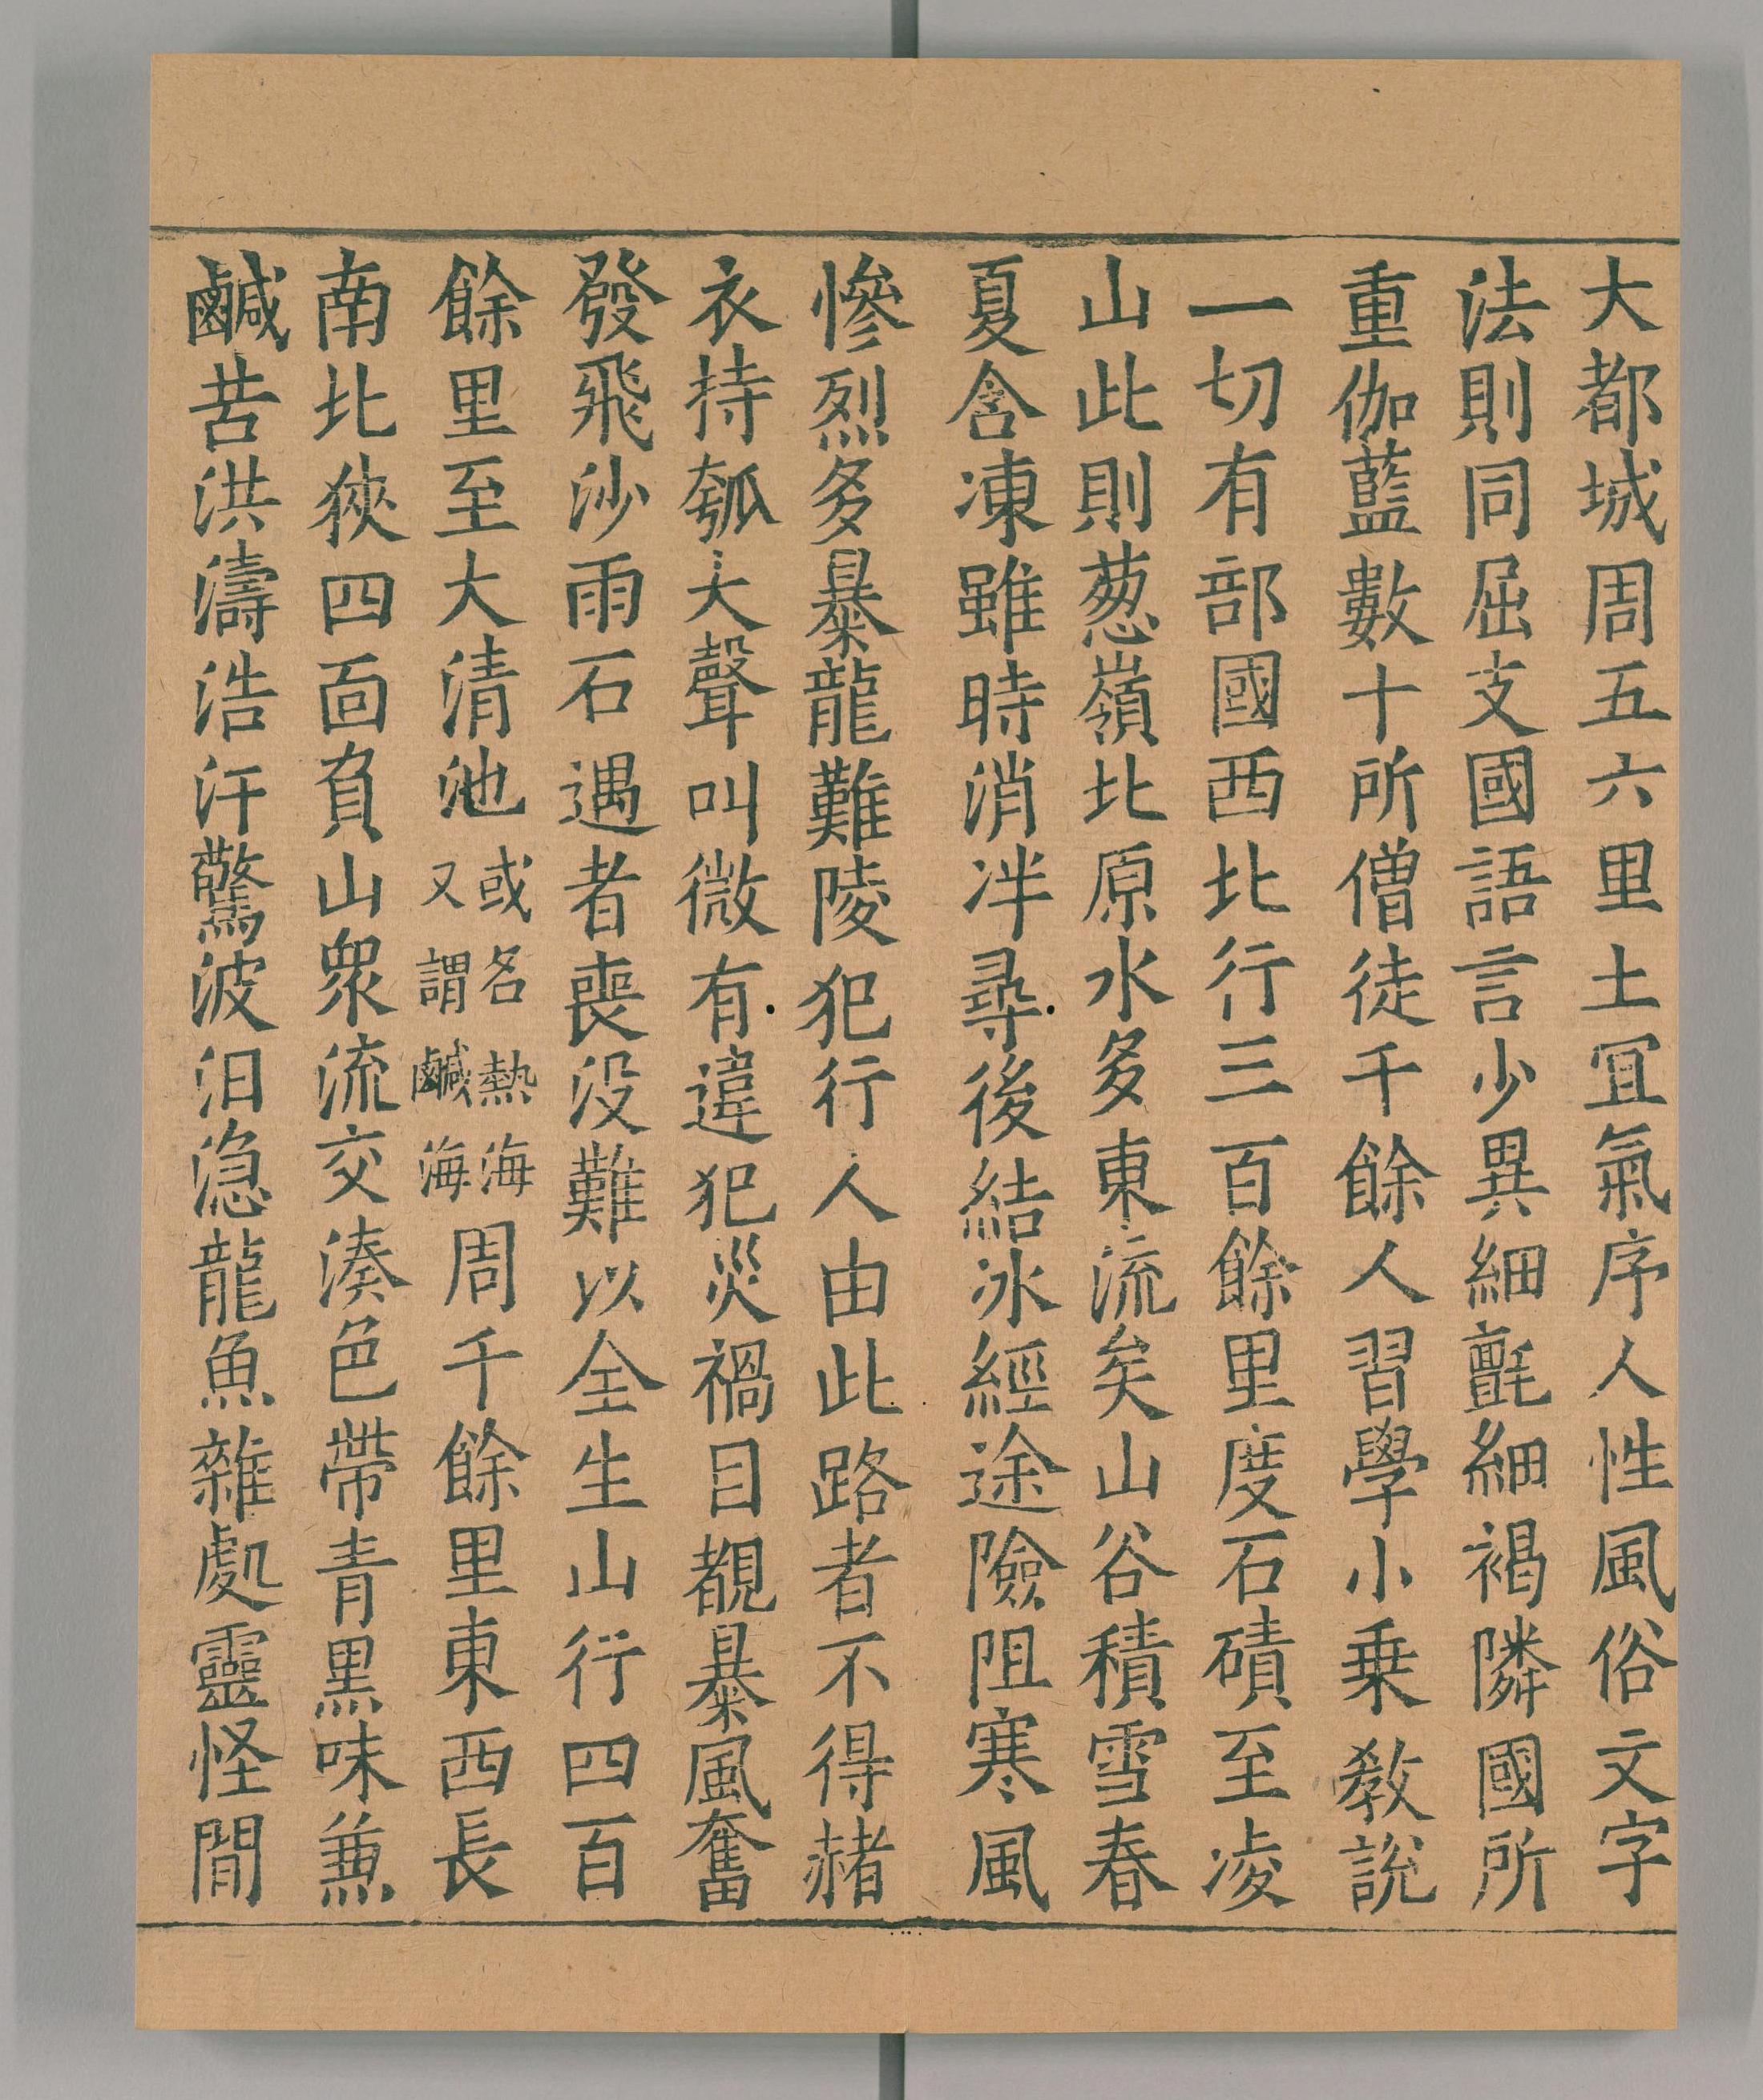 大都城周五六里土冝氣序人性風俗文字
法則同屈支國語言少異細氈細褐隣國所
重伽藍數十所僧徒千餘人習學小乗教說
一切有部國西北行三百餘里度石磧至凌
山此則葱嶺北原水多東流矣山谷積雪春
夏含凍雖時消泮尋後結冰經途險阻寒風
慘烈多暴龍難陵犯行人由此路者不得赭
衣持瓠大聲叫微有違犯災禍目覩暴風奮
發飛沙雨石遇者喪没難以全生山行四百
餘里至大清池或名熱海又謂鹹海周千餘里東西長
南北狹四面負山衆流交湊色帶青黑味兼
鹹苦洪濤浩汗驚波汩㴔龍魚雜處靈怪間